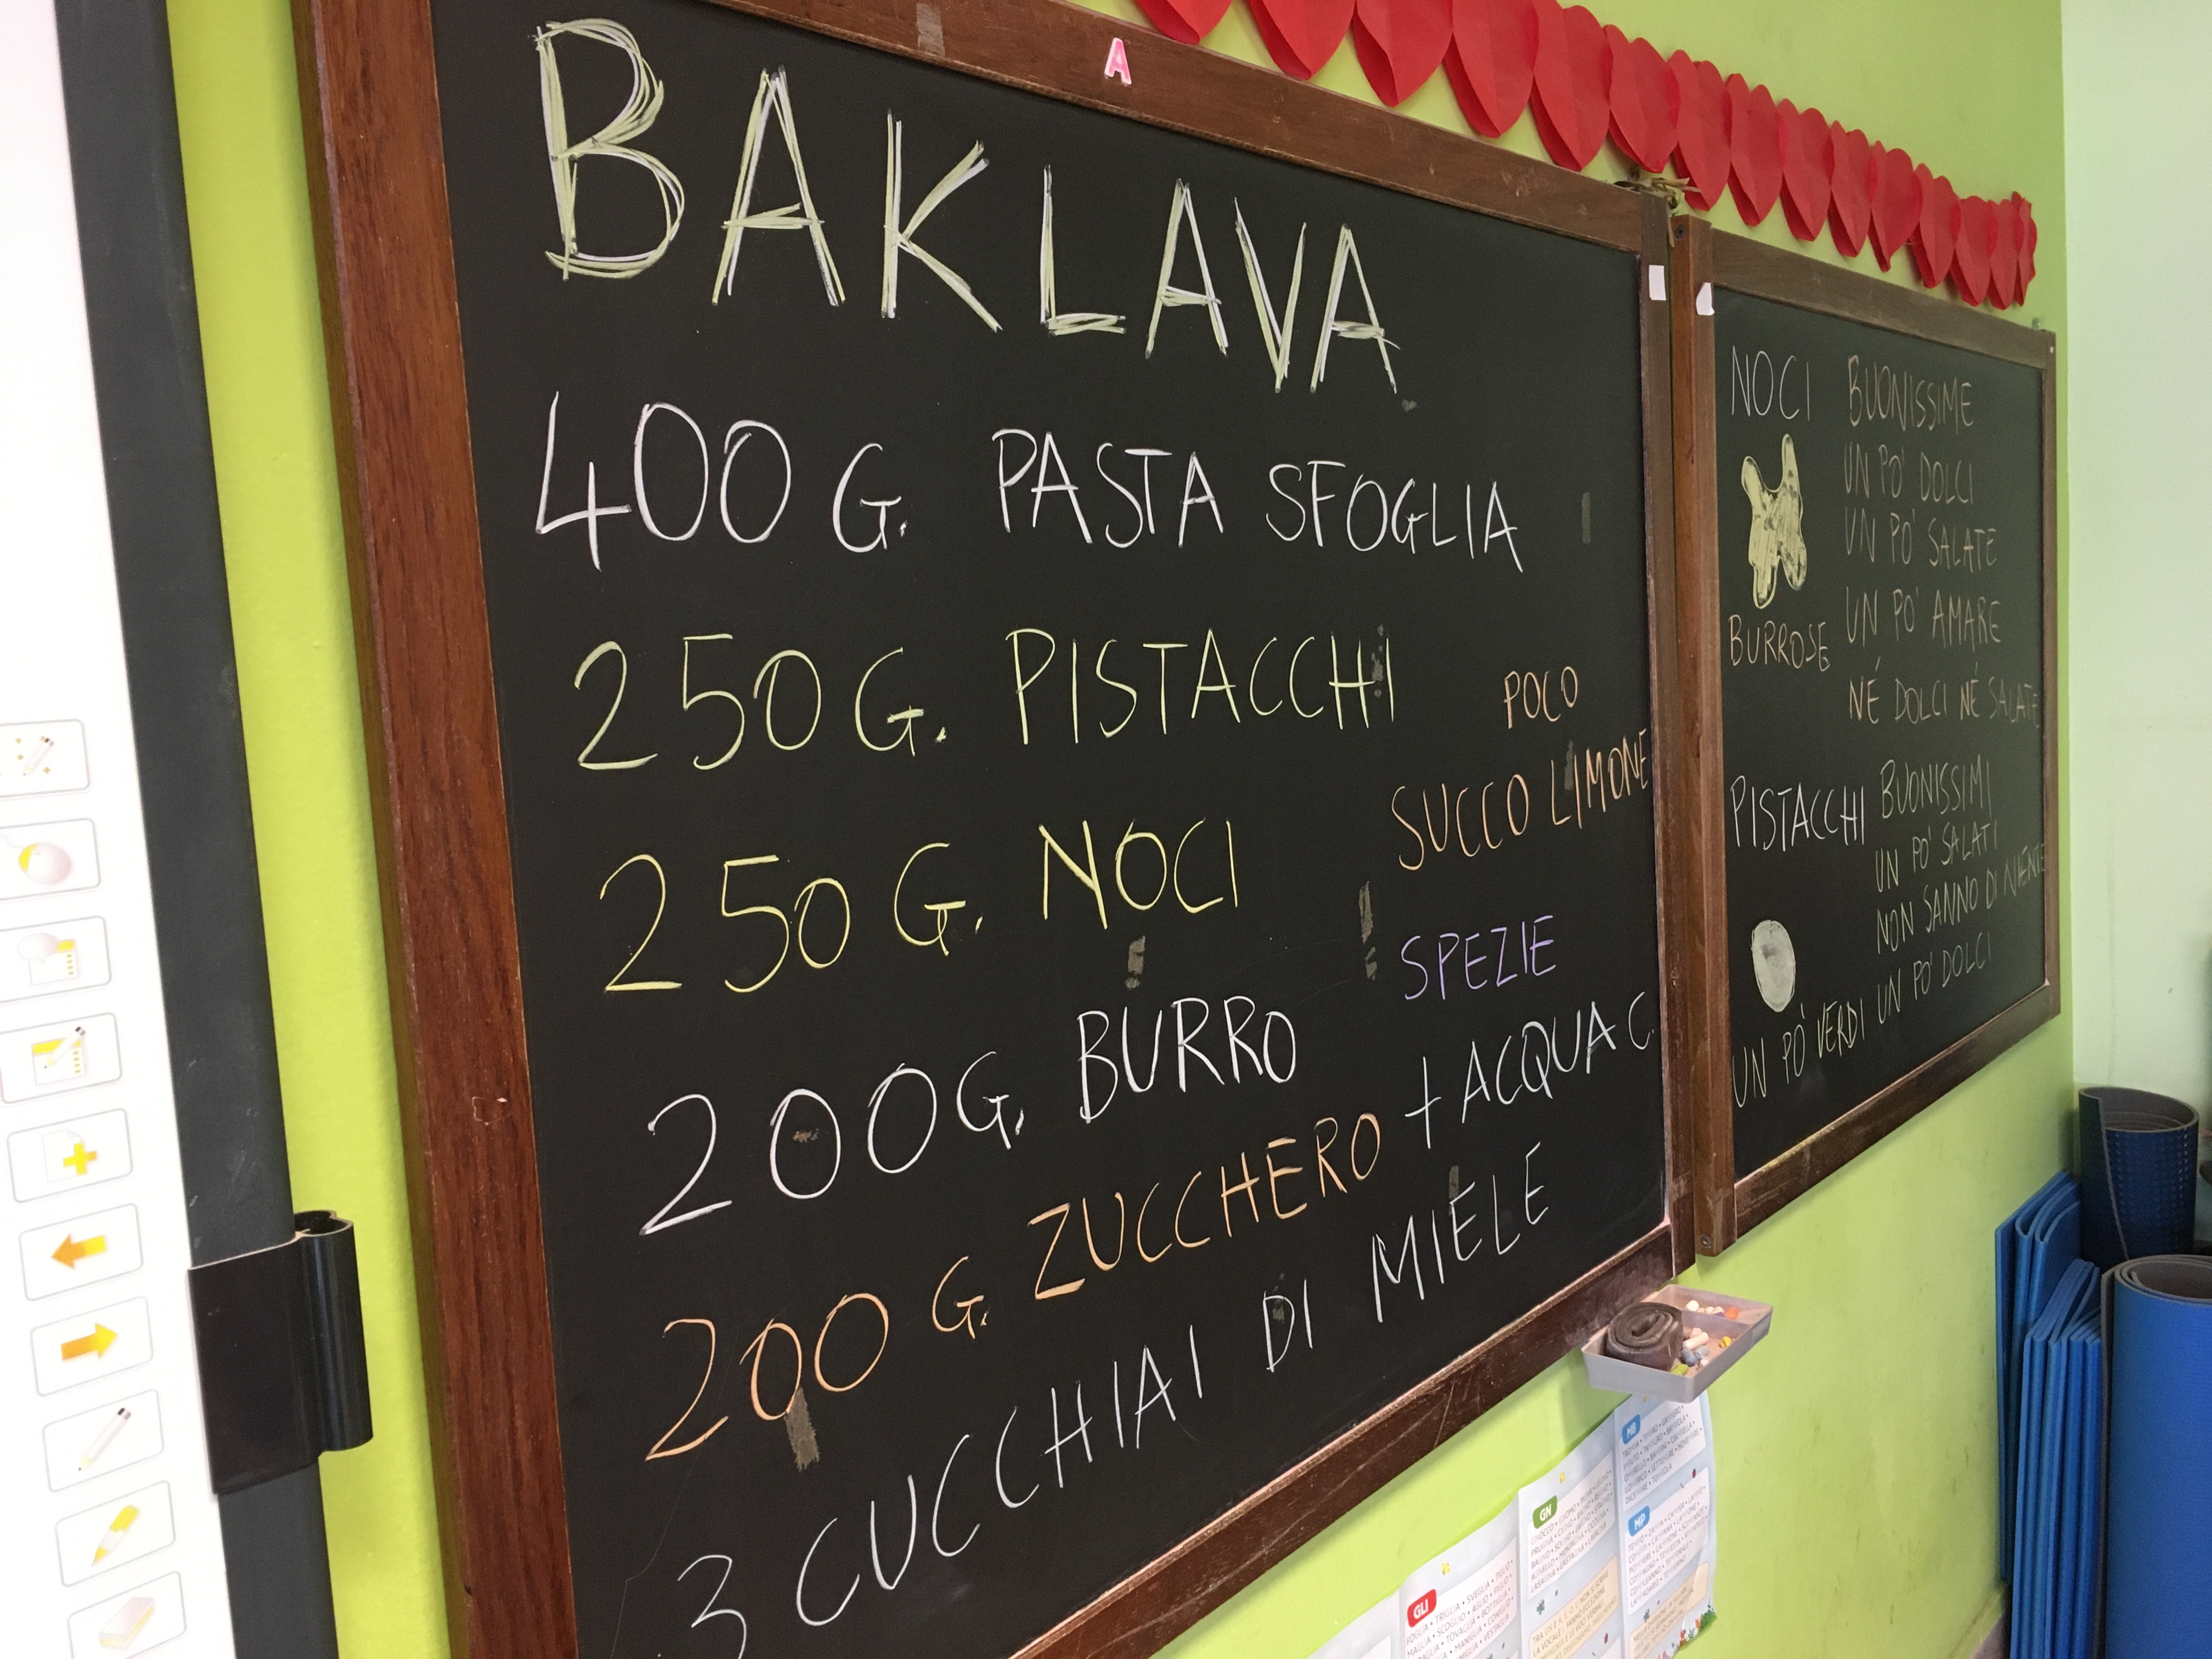 A
BAKLAVA
400 G. PASTA SFOGLIA
250 G. PISTACCHI
250 G. NOCI
200 G. BURRO
200 G. ZUCCHERO + ACQUA C.
3 CUCCHIAI DI MIELE
POCO
SUCCO LIMONE
SPEZIE
NOCI
BURROSE
BUONISSIME
UN PO' DOLCI
UN PO' SALATE
UN PO' AMARE
NÉ DOLCI NÉ SALATE
PISTACCHI
BUONISSIMI
UN PO' SALATI
NON SANNO DI NIENTE
UN PO' DOLCI
UN PO' VERDI
GLI
GN
MB
MP